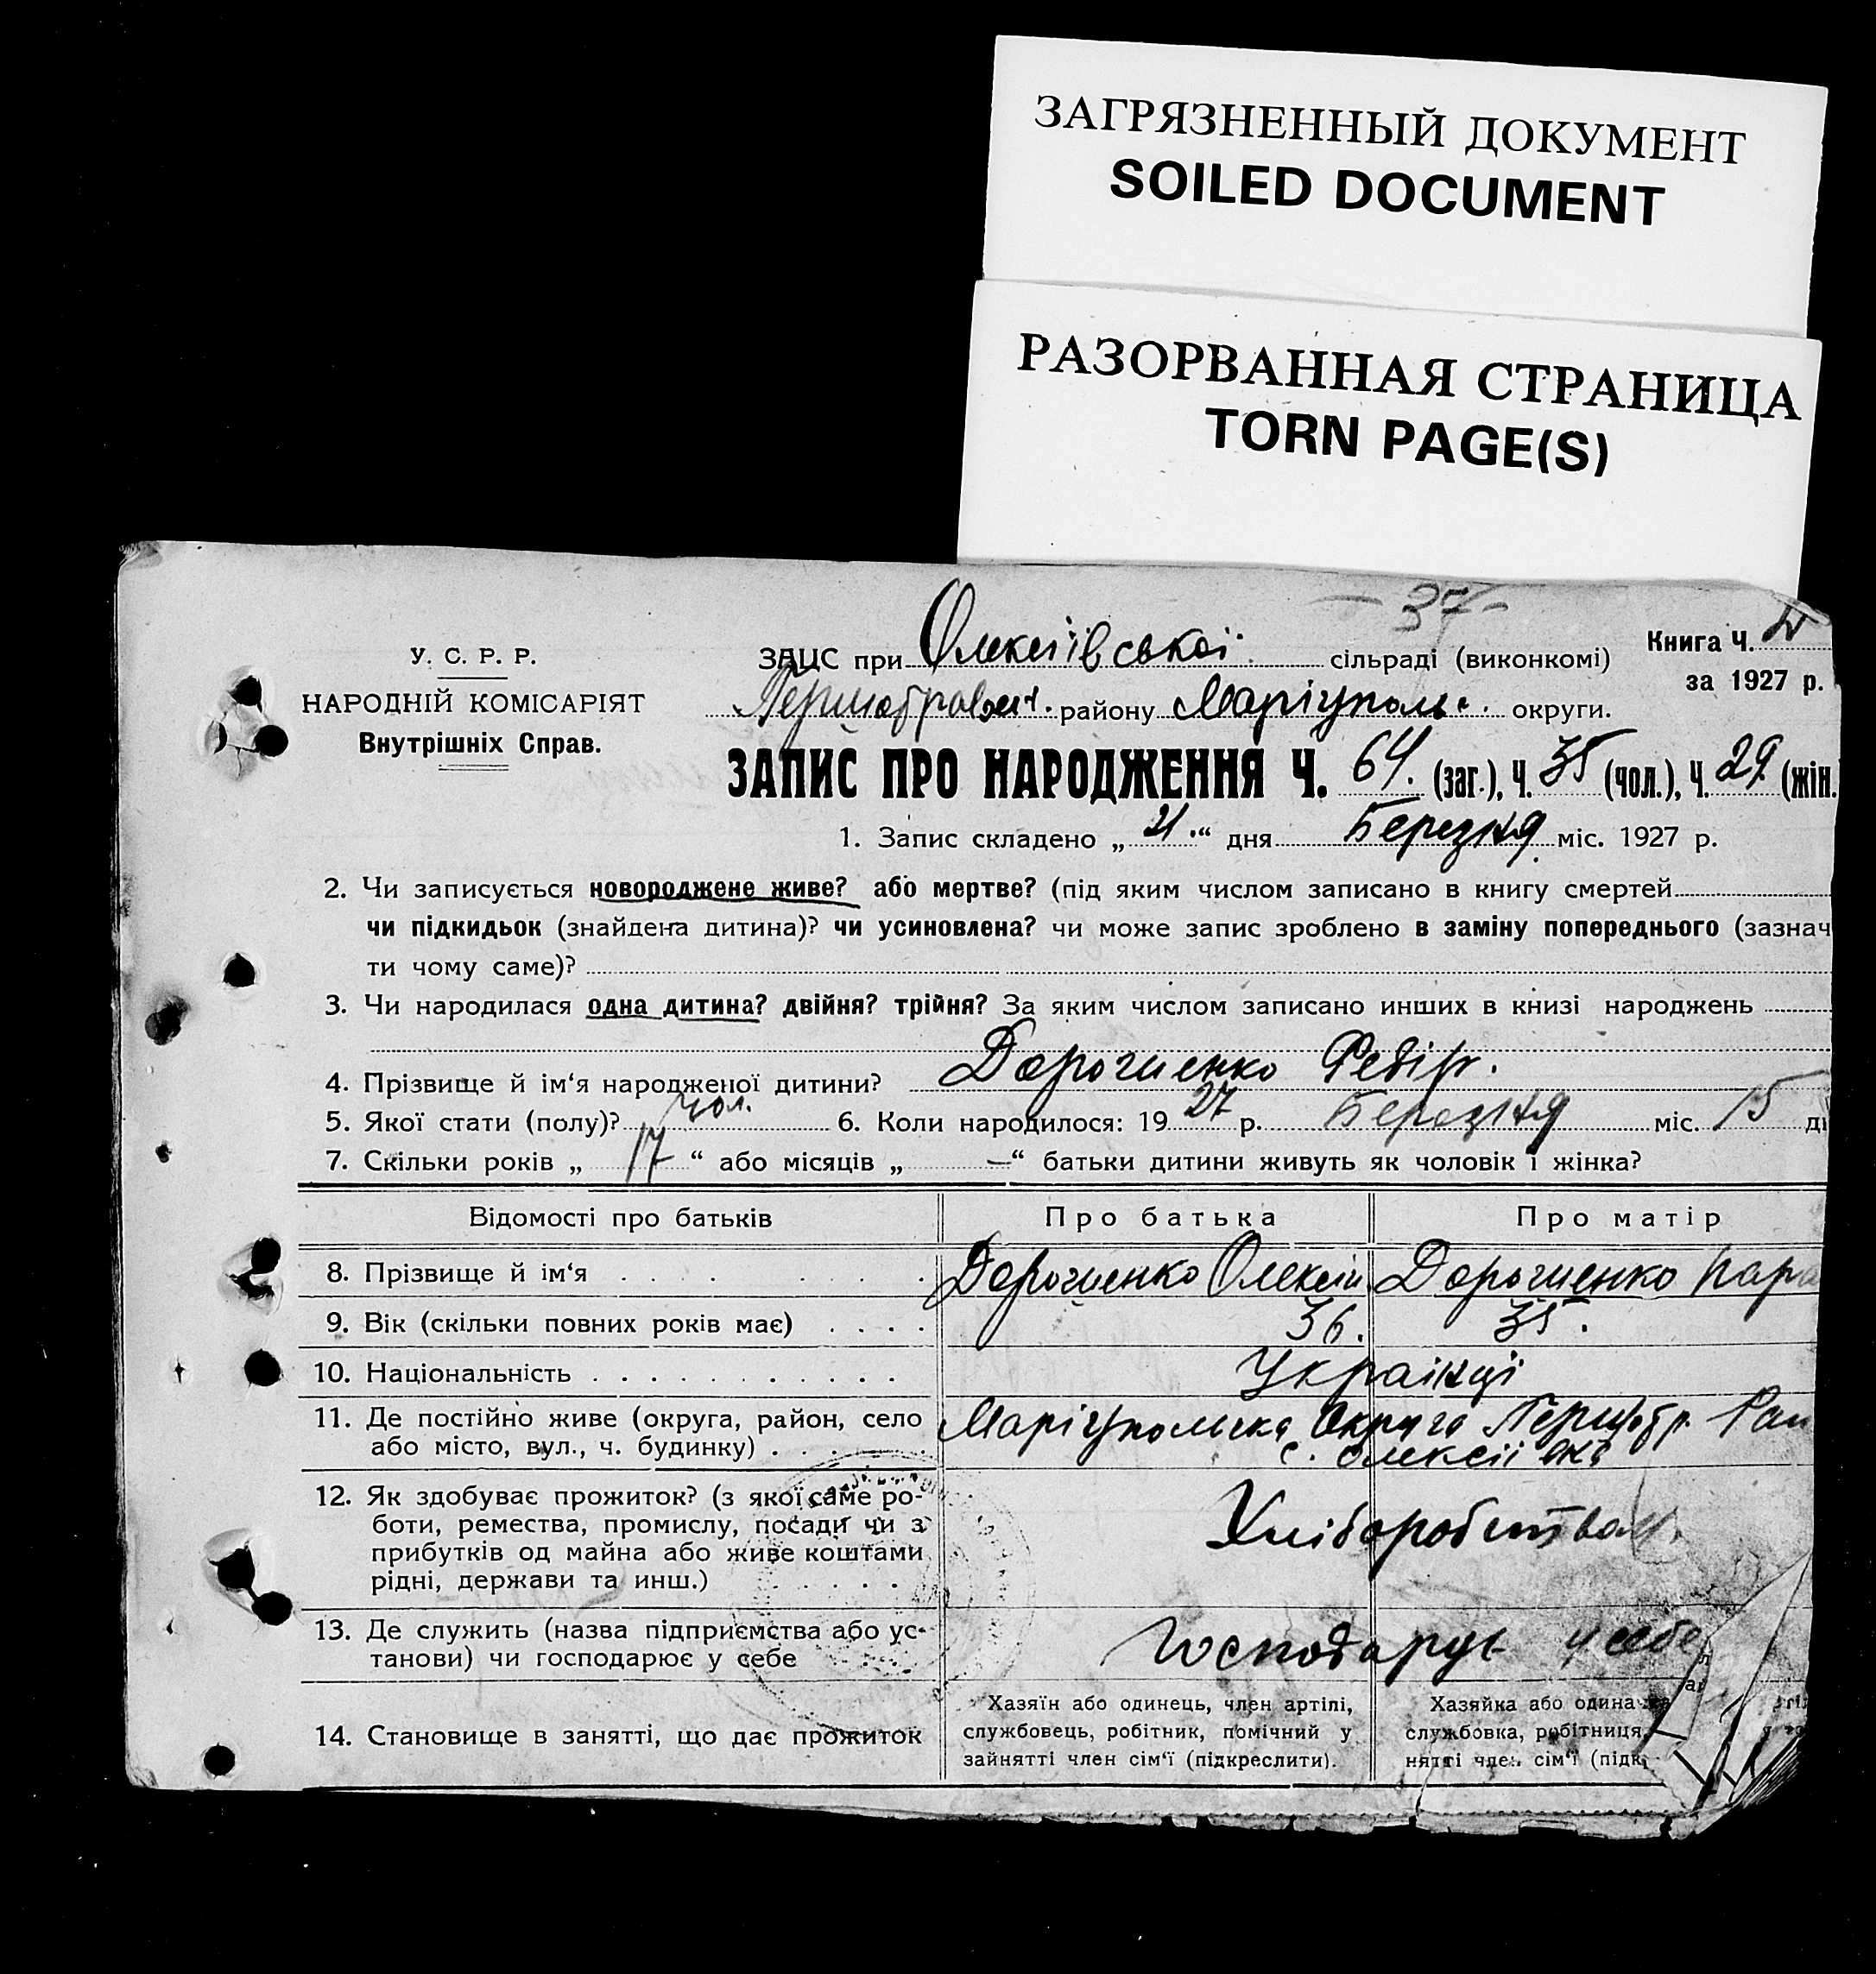 ЗАГРЯЗНЕННЫЙ ДОКУМЕНТ
SOILED DOCUMENT
РАЗОРВАННАЯ СТРАНИЦА
TORN PAGE(S)
— 37 -
У. С. Р. Р.
НАРОДНІЙ КОМІСАРІЯТ
Внутрішніх Справ.
ЗАЦС при Олексіївської сільраді (виконкомі)
Книга Ч.
за 1927 р.
району Маріуполь. округи.
ЗАПИС ПРО НАРОДЖЕННЯ Ч. 64. (заг.), Ч. 35 (чол.), Ч. 29 (жін.
1. Запис складено „ 21." дня Березня міс. 1927 р.
2. Чи записується новороджене живе? або мертве? (під яким числом записано в книгу смертей
чи підкидьок (знайдена дитина)? чи усиновлена? чи може запис зроблено в заміну попереднього (зазнач
ти чому саме)?
3. Чи народилася одна дитина? двійня? трійня? За яким числом записано инших в книзі народжень
4. Прізвище й ім‘я народженої дитини? Дорошенко Федір.
5. Якої стати (полу)? чол. 6. Коли народилося: 19 27 р. Березня міс. 15 д
7. Скільки років „ 17 “ або місяців „ —“ батьки дитини живуть як чоловік і жінка?
Відомості про батьків Про батька Про матір
8. Прізвище й ім‘я . . . . . . . Дорошенко Олексій Дорошенко Пара
9. Вік (скільки повних років має) . . . . 36. 35.
10. Національність . . . . . . . . . . . Українці
11. Де постійно живе (округа, район, село
або місто, вул., ч. будинку) . . . . .
Маріупольська Округа Першотр. Рай
с. Олексіївка
12. Як здобуває прожиток? (з якої саме ро-
боти, ремества, промислу, посади чи з
прибутків од майна або живе коштами
рідні, держави та инш.) . . . . .
Хліборобством.
13. Де служить (назва підприємства або ус-
танови) чи господарює у себе . . . .
Господарує у себе
14. Становище в занятті, що дає прожиток
Хазяїн або одинець, член артілі,
службовець, робітник, помічний у
зайнятті член сім‘ї (підкреслити).
Хазяйка або одина
службовка, робітниця,
нятті член сім‘ї (підк